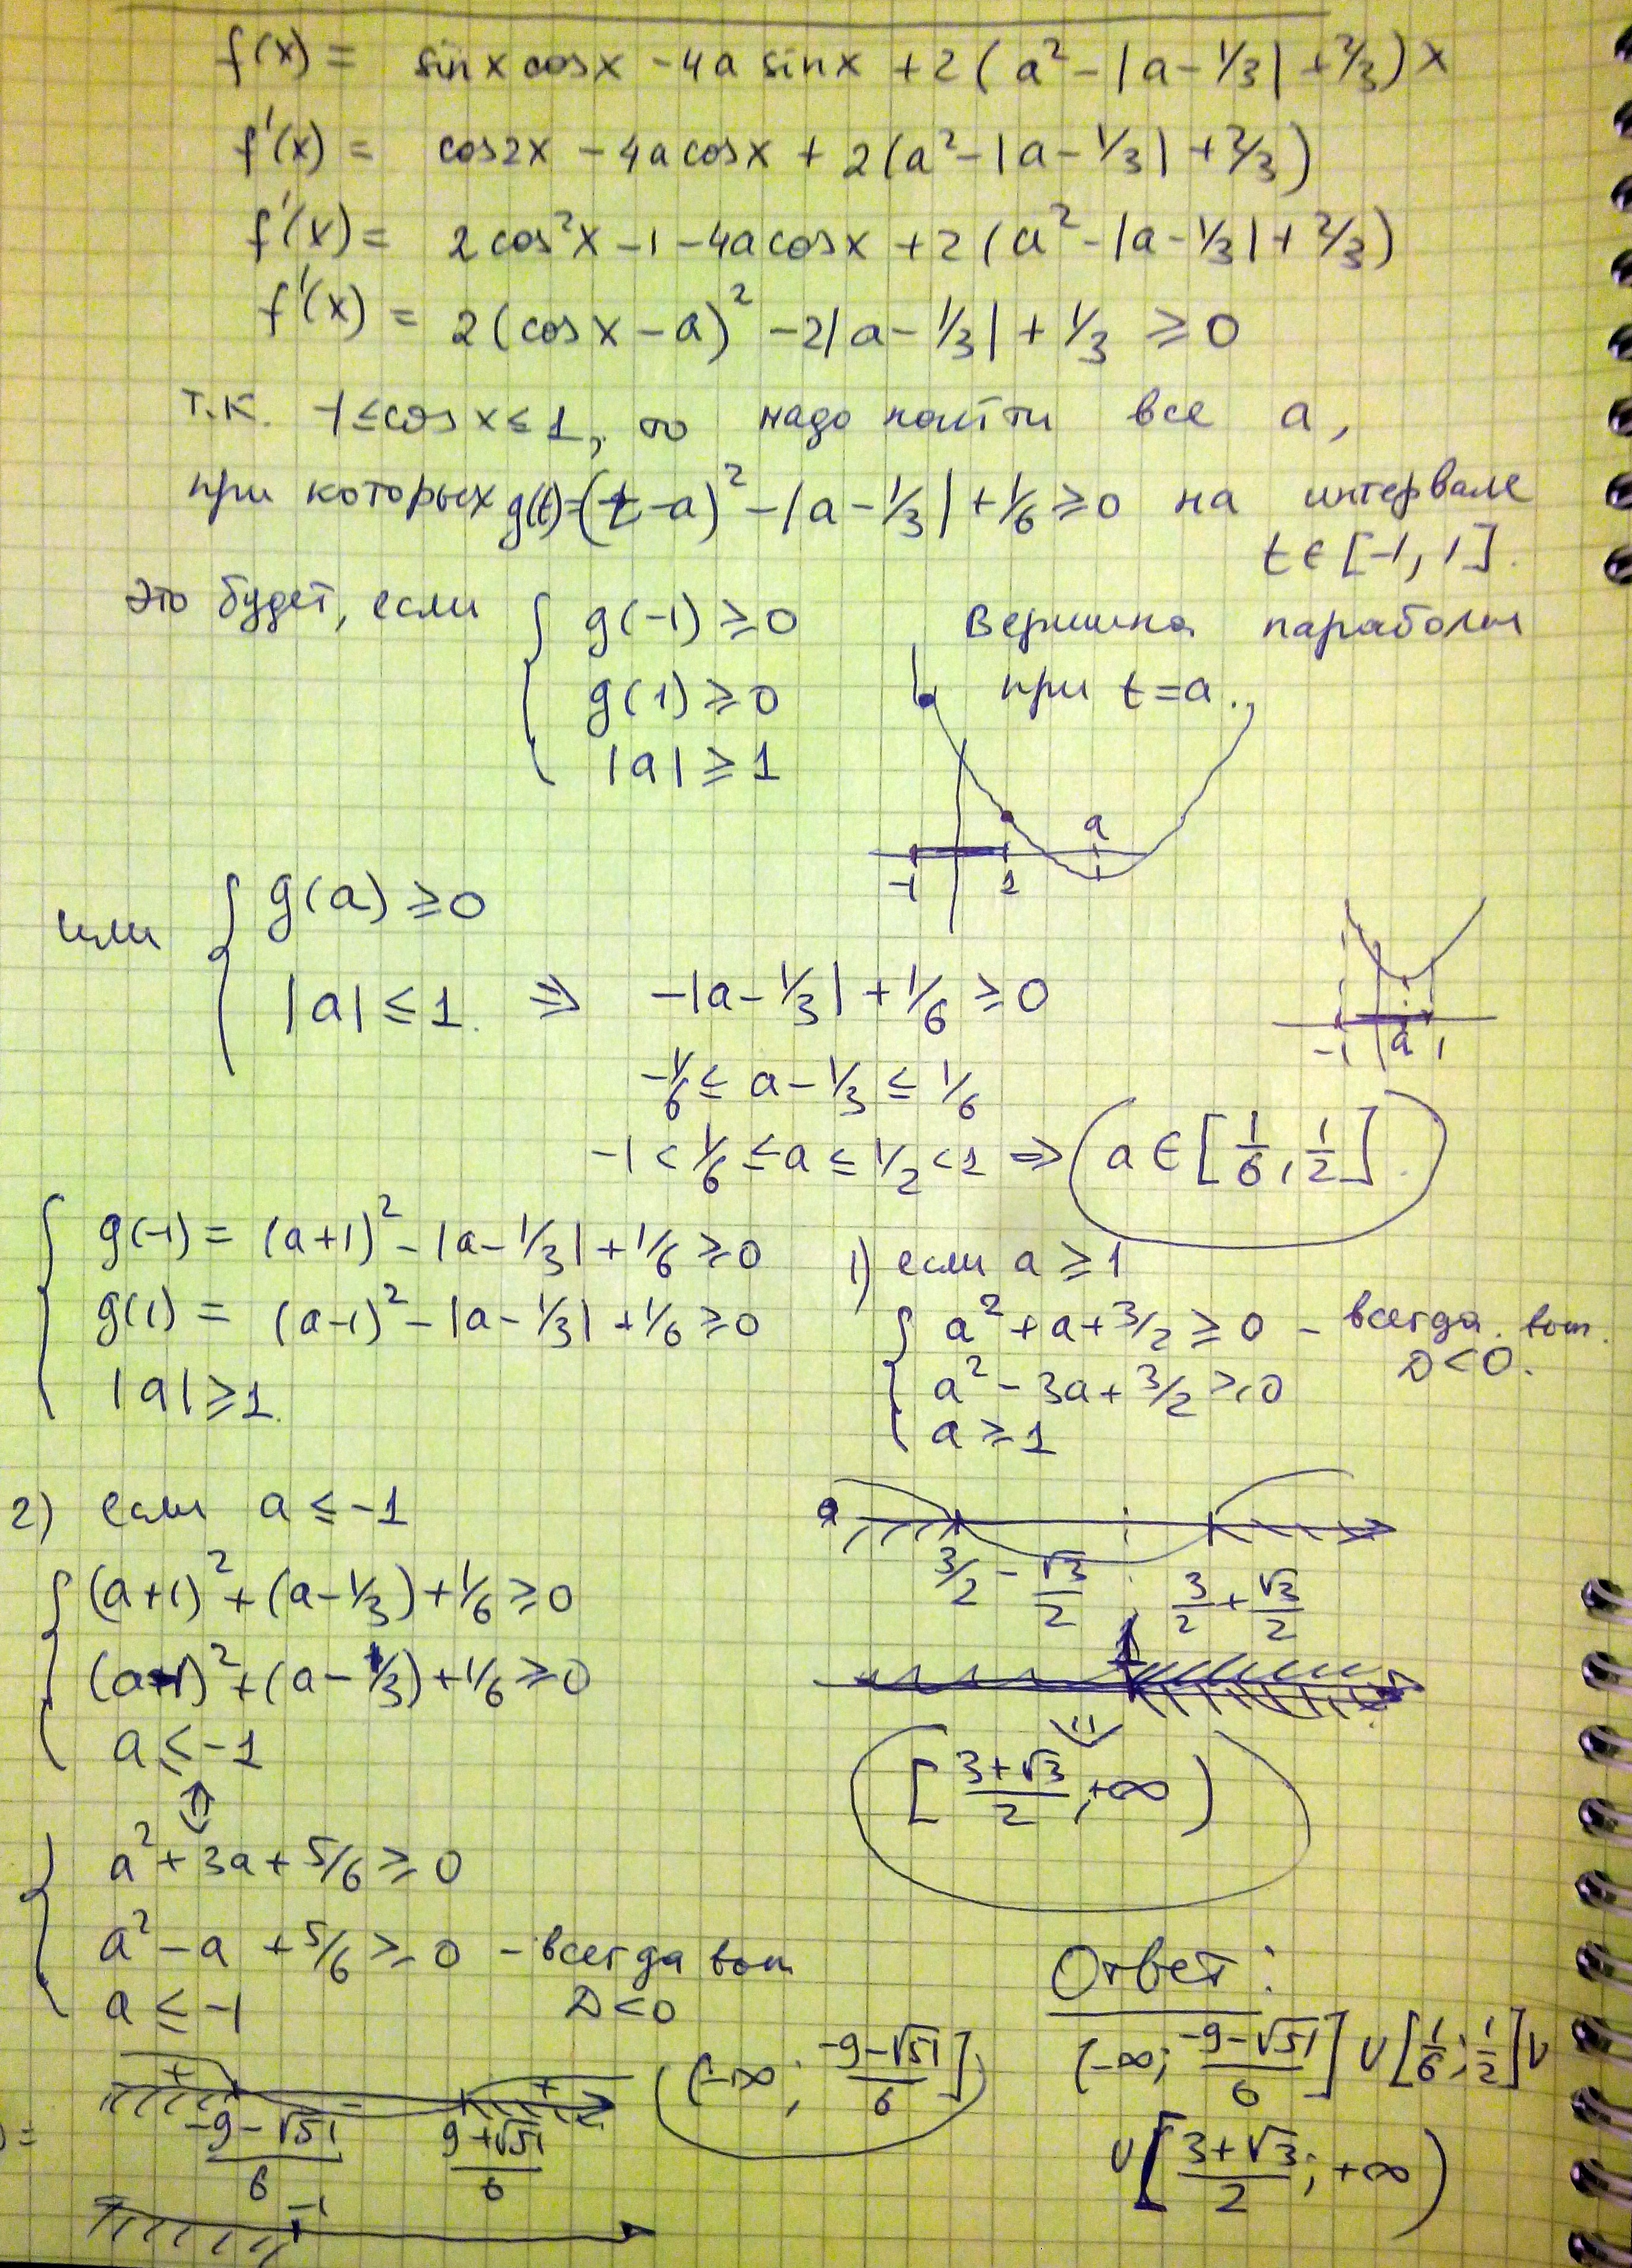 f(x) = sinx cosx - 4a sinx + 2(a² - |a - 1/3| + 2/3) x
f'(x) = cos2x - 4a cosx + 2(a² - |a - 1/3| + 2/3)
f'(x) = 2cos²x - 1 - 4a cosx + 2(a² - |a - 1/3| + 2/3)
f'(x) = 2(cosx - a)² - 2|a - 1/3| + 1/3 ≥ 0
т.к. -1 ≤ cosx ≤ 1, то надо найти все a,
при которых g(t) = (t - a)² - |a - 1/3| + 1/6 ≥ 0 на интервале
t ∈ [-1, 1].
Это будет, если { g(-1) ≥ 0
g(1) ≥ 0
|a| ≥ 1
Вершина параболы
при t = a.
a
-1 1
или { g(a) ≥ 0
|a| ≤ 1. ⇒ -|a - 1/3| + 1/6 ≥ 0
-1 a 1
-1/6 ≤ a - 1/3 ≤ 1/6
-1 < 1/6 ≤ a ≤ 1/2 < 1 ⇒ a ∈ [1/6, 1/2].
{ g(-1) = (a+1)² - |a - 1/3| + 1/6 ≥ 0
g(1) = (a-1)² - |a - 1/3| + 1/6 ≥ 0
|a| ≥ 1.
1) если a ≥ 1
{ a² + a + 3/2 ≥ 0 - всегда вып.
D < 0.
a² - 3a + 3/2 ≥ 0
a ≥ 1
3/2 - √3/2 3/2 + √3/2
1
⇓
[ (3+√3)/2 ; +∞ )
2) если a ≤ -1
{ (a+1)² + (a - 1/3) + 1/6 ≥ 0
(a-1)² + (a - 1/3) + 1/6 ≥ 0
a ≤ -1
⇕
{ a² + 3a + 5/6 ≥ 0
a² - a + 5/6 ≥ 0 - всегда вып
D < 0
a ≤ -1
+ - +
(-9-√51)/6 (9+√51)/6
-1
(-∞ ; (-9-√51)/6]
Ответ:
(-∞; (-9-√51)/6] ∪ [1/6; 1/2] ∪
∪ [(3+√3)/2; +∞)